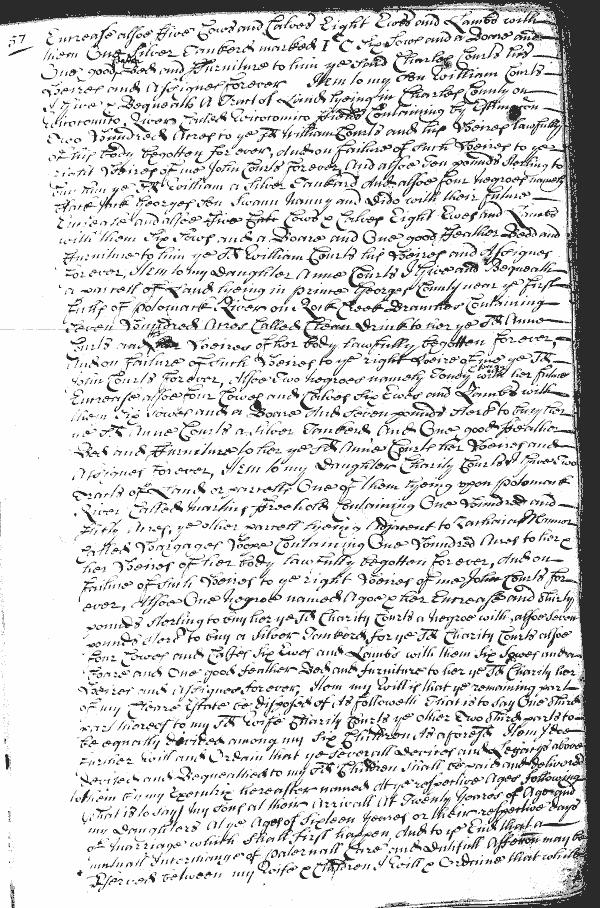 57
Encrease alsoe five Cows and Calves Eight Ewes and Lambs with
them One Silver Tankerd marked I C Six Sows and a Boare and
One good feather Bed and Furniture to him ye said Charles Courts his
Heires and Assignes forever Item to my Son William Courts
I Give & Bequeath A Tract of Land lyeing in Charles County on
River Called Containing by
Two Hundred Acres to ye Sd William Courts and his Heires lawfully
of his body begotten forever, and on failure of such Heires to ye
right Heires of me John Courts forever And alsoe Ten pounds sterling to
buy him ye Sd William a Silver Tankard And alsoe four negroes namely
Jack Georges Son Swann Nanny and Dido with their future
Encrease and alsoe five Cows & Calves Eight Ewes and Lambs
with them Six Sows and a Boare and One good feather Bedd and
Furniture to him ye Sd William Courts his Heires and Assignes
forever, Item to my daughter Anne Courts I Give and Bequeath
a parcell of Land lyeing in Prince Georges County near ye first
falls of Potomack River on Rock Creek Branches Containing
Seven Hundred Acres Called Clean Drink to her ye Sd Anne
Courts and Heires of her body lawfully begotten forever,
And on failure of such Heires to ye right Heires of me ye Sd
John Courts forever, Alsoe Two negroes namely with her future
Encrease alsoe four Cowes and Calves Six Ewes and Lambs with
them Six Sowes and a Boare And Seven pounds sterl to buy her
ye Sd Anne Courts a Silver Tankerd And One good feather
Bed and Furniture to her ye Sd Anne Courts her Heires and
Assignes forever, Item to my Daughter Charity Courts I Give Two
Tracts of Land or parcells One of them lyeing upon Potomack
River Called Martins Freehold Containing One Hundred and
fifty Acres, ye other parcell lyeing Adjacent to Zachaiah Mannor
Called Hope Containing One Hundred Acres to her &
her Heires of her body lawfully begotten forever, And on
failure of such Heires to ye right Heires of me John Courts for
ever, Alsoe One negroe named & her Encrease and thirty
pounds sterling to buy her ye Sd Charity Courts a negroe with, alsoe seven
pounds sterl to buy a Silver Tankerd for ye Sd Charity Courts alsoe
four Cowes and Calves Six Ewes and Lambs with them Six Sowes and a
Boare and One good feather Bed and furniture to her ye Sd Charity her
Heires and Assignes forever, Item my will is that ye remaining part
of my Cleare Estate be disposed of As followeth That is to say One third
part thereof to my Sd Wife Charity Courts ye other Two third parts to
be equally devided among my Six Children As aforesd Item I doe
further will and Ordain that ye severall devices and Legacys above
devised and Bequeathed to my Sd Children shall be paid and delivered
to them by my Executrix hereafter named At ye respective Ages following
(that is to say) my sons at their Arrivall At Twenty Yeares of Age and
my daughters At ye Ages of Sixteen Yeares or their respective days
of marriage which shall first happen, And to ye End that a
mutuall Interchange of paternall Care and dutifull Affection may be
observed between my Wife & Children I will & Ordaine that while